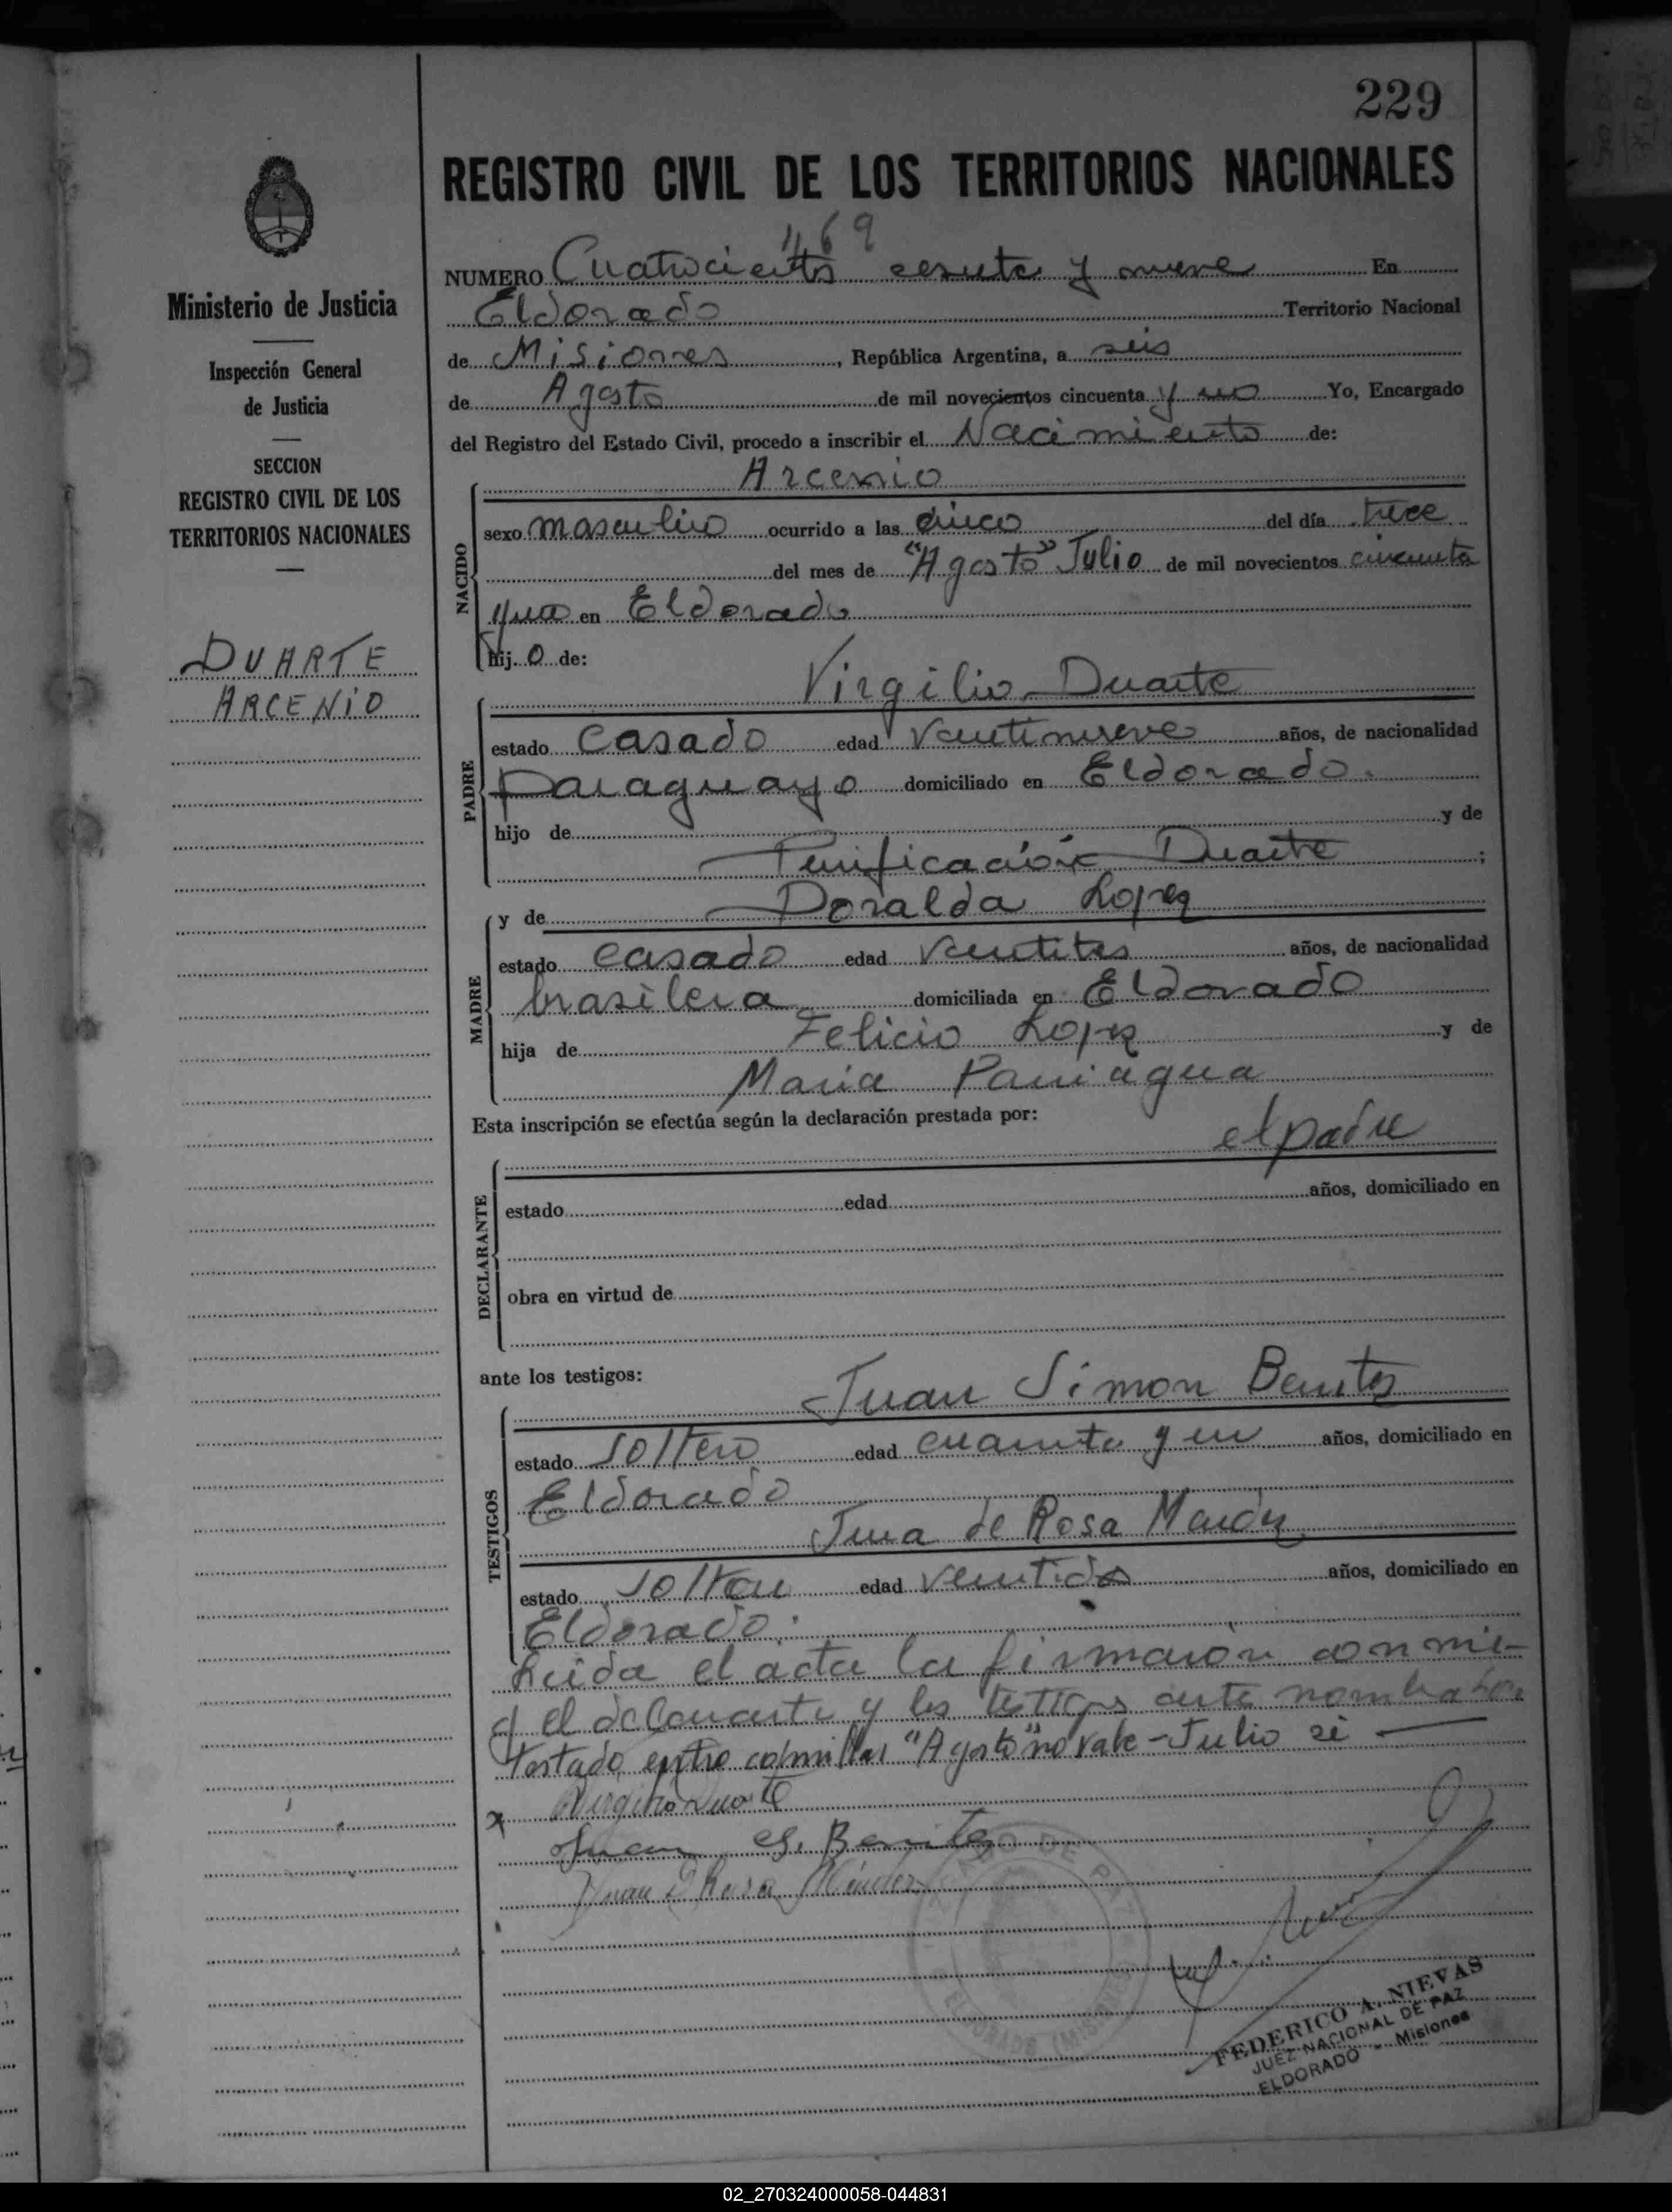 229
REGISTRO CIVIL DE LOS TERRITORIOS NACIONALES
469
NUMERO Cuatrocientos sesenta y nueve En
Eldorado Territorio Nacional
de Misiones, República Argentina, a seis
de Agosto de mil novecientos cincuenta y uno Yo, Encargado
del Registro del Estado Civil, procedo a inscribir el Nacimiento de:
Arcenio
NACIDO
sexo masculino ocurrido a las cinco del día trece
del mes de "Agosto" Julio de mil novecientos cincuenta
y uno en Eldorado
hij o de:
Virgilio Duarte
PADRE
estado Casado edad Veintinueve años, de nacionalidad
paraguayo domiciliado en Eldorado.
hijo de y de
Purificación Duarte ;
y de Doralda Lopez
MADRE
estado casado edad Veintitres años, de nacionalidad
brasilera domiciliada en Eldorado
hija de Felicio Lopez y de
Maria Paniagua
Esta inscripción se efectúa según la declaración prestada por:
el padre
DECLARANTE
estado edad años, domiciliado en
obra en virtud de
ante los testigos:
Juan Simon Benitez
TESTIGOS
estado soltero edad cuarenta y un años, domiciliado en
Eldorado
de Rosa
estado soltero edad veintidos años, domiciliado en
Eldorado.
Leida el acta la firmaron conmi-
go el declarante y los testigos ante nombrados
Testado entre comillas "Agosto" no vale - Julio si
x Virgilio Duarte
Juan S. Benitez
Juan D Rosa Méndez
JUZGADO DE PAZ
ELDORADO (MISIONES)
FEDERICO A. NIEVAS
JUEZ NACIONAL DE PAZ
ELDORADO - Misiones
Ministerio de Justicia
Inspección General
de Justicia
SECCION
REGISTRO CIVIL DE LOS
TERRITORIOS NACIONALES
DUARTE
ARCENIO
02_270324000058-044831